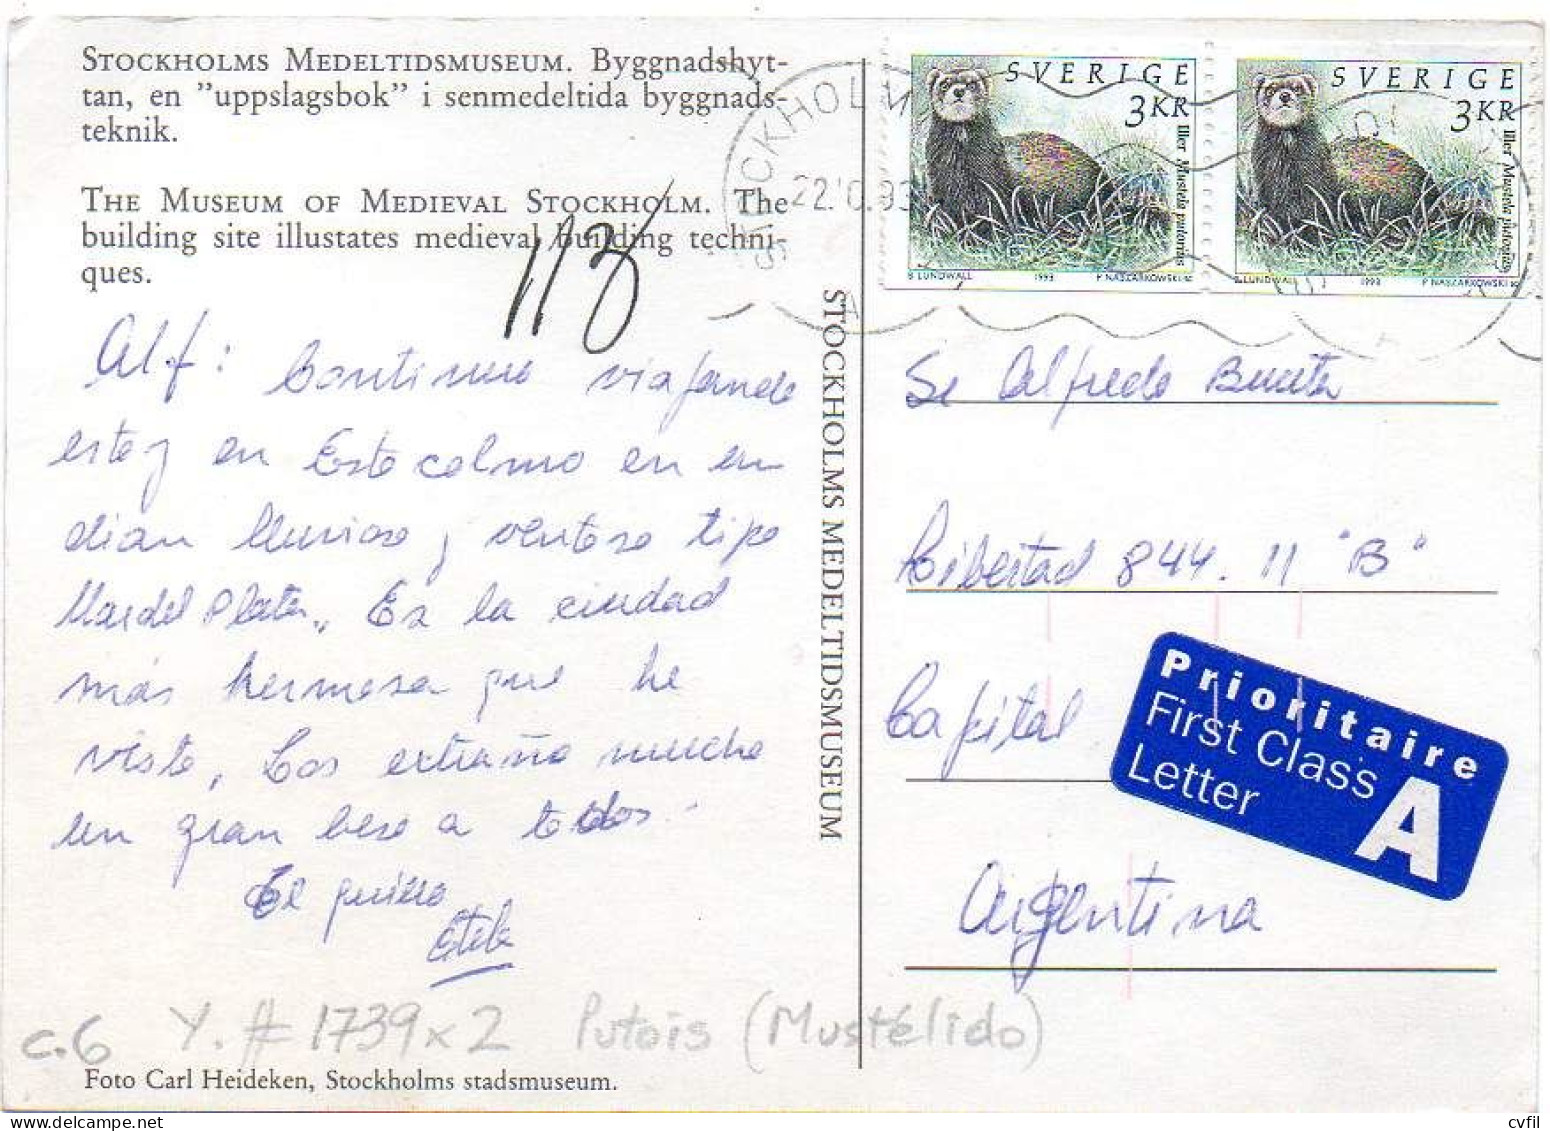 STOCKHOLMS MEDELTIDSMUSEUM. Byggnadshyt-
tan, en ”uppslagsbok” i senmedeltida byggnads-
teknik.
THE MUSEUM OF MEDIEVAL STOCKHOLM. The
building site illustates medieval building techni-
ques.
113
Alf: Continuo viajando
estoy en Estocolmo en un
dian lluvioso y ventoso tipo
Mar del Plata. Es la ciudad
más hermosa que he
visto. Los extraño mucho
un gran beso a todos.
El
c.6 Y. # 1739 x 2 Putois (Mustélido)
Foto Carl Heideken, Stockholms stadsmuseum.
STOCKHOLMS MEDELTIDSMUSEUM
STOCKHOLM
22.10.93
A
SVERIGE
3 KR
Iller Mustela putorius
B LUNDWALL 1993 P NASZARKOWSKI sc
SVERIGE
3 KR
Iller Mustela putorius
B LUNDWALL 1993 P NASZARKOWSKI sc
Sr Alfredo
Libertad 844. 11 "B"
Capital
Argentina
Prioritaire
First Class
Letter
A
cvfil